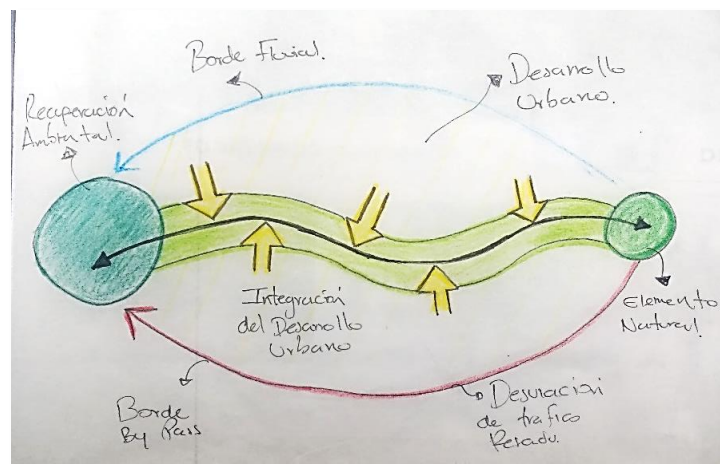 Borde Fluvial.
Desarrollo
Urbano.
Recuperación
Ambiental.
Integración
del Desarollo
Urbano
Elemento
Natural.
Borde
By Pass
Desviación
de trafico
Pesado.